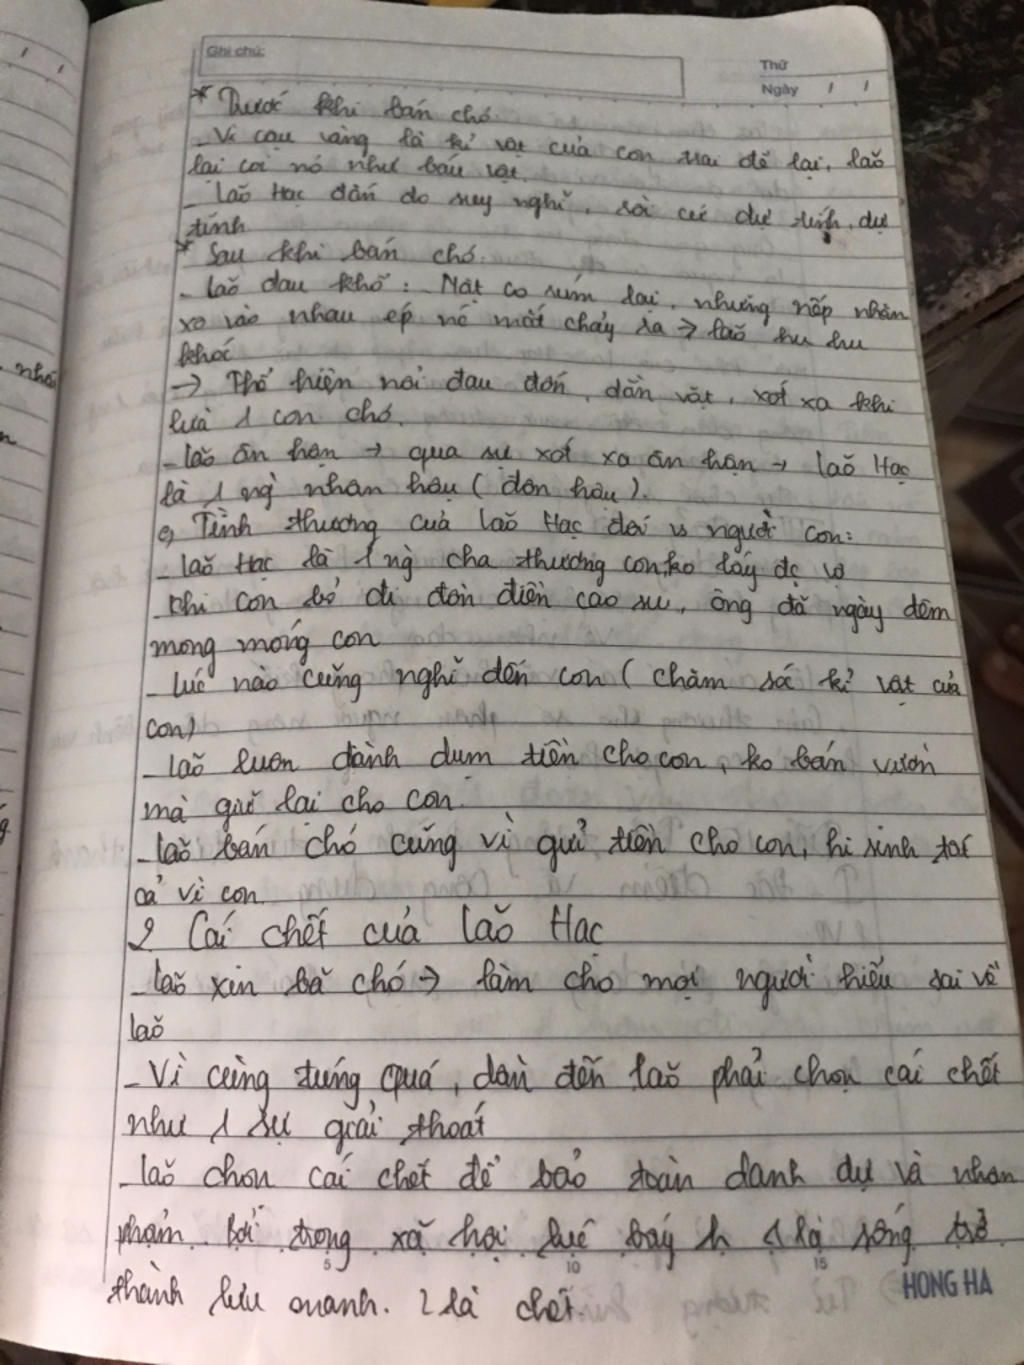 Ghi chú:
Thứ
Ngày / /
* Trước khi bán chó
- Vì cậu vàng là kỉ vật của con trai để lại, lão
lại coi nó như báu vật.
- Lão Hạc đắn đo suy nghĩ, rồi cứ dự tính, dự
tính
* Sau khi bán chó.
- Lão đau khổ: Mặt co rúm lại, những nếp nhăn
xô vào nhau ép nc mắt chảy ra → lão hu hu
khóc
→ Thể hiện nỗi đau đớn, dằn vặt, xót xa khi
lừa 1 con chó.
- Lão ân hận → qua sự xót xa ân hận → Lão Hạc
là 1 ng' nhân hậu (đôn hậu).
c, Tình thương của Lão Hạc đối vs người con:
- Lão Hạc là 1 ng' cha thương con, ko lấy đc vợ
khi con bỏ đi đồn điền cao su, ông đã ngày đêm
mong mỏng con
- Lúc nào cũng nghĩ đến con (chăm sóc kỉ vật của
con)
- Lão luôn dành dụm tiền cho con, ko bán vườn
mà giữ lại cho con.
- Lão bán chó cũng vì gửi tiền cho con, hi sinh tất
cả vì con.
2 Cái chết của Lão Hạc
- Lão xin bả chó → làm cho mọi người hiểu sai về
lão
- Vì cùng túng quá, dẫn đến lão phải chọn cái chết
như 1 sự giải thoát
- Lão chọn cái chết để bảo toàn danh dự và nhân
phẩm. Bởi trong xã hội lúc bấy h 1 là sống trở
thành lưu manh. 2 là chết.
5 10 15
HONG HA